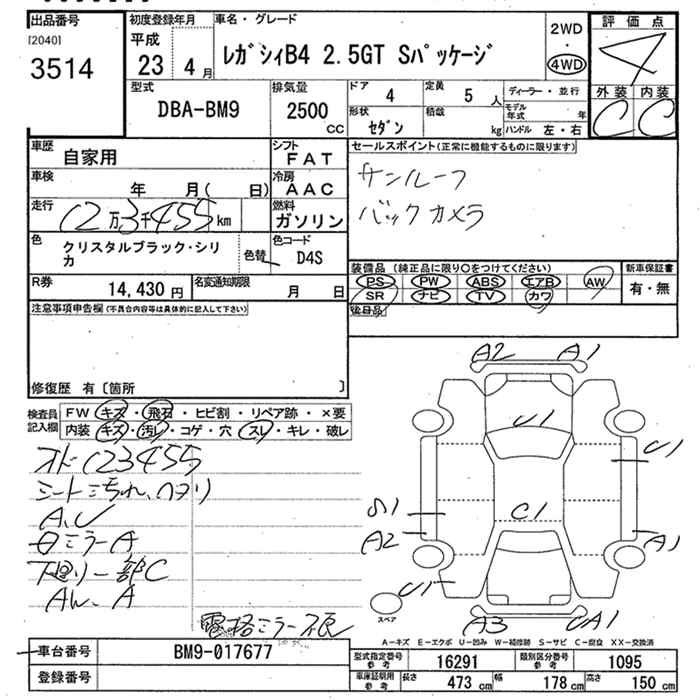 出品番号
[2040]
3514
初度登録年月
平成
23 4月
車名・グレード
レガシィB4 2.5GT Sパッケージ
2WD
・
4WD
評価点
4
外装 内装
C C
型式
DBA-BM9
排気量
2500
CC
ドア
4
定員
5 人
形状
セダン
積載
kg
ディーラー・並行
モデル年式 年
ハンドル 左・右
車歴
自家用
シフト
FAT
車検
年 月( 日)
冷房
AAC
走行
12万3千455km
燃料
ガソリン
色
クリスタルブラック・シリカ
色替
色コード
D4S
R券
14,430 円
名変通知期限
月 日
セールスポイント(正常に機能するものに限ります)
サンルーフ
バックカメラ
装備品(純正品に限り○をつけてください)
PS PW ABS エアB AW
SR ナビ TV カワ
新車保証書
有・無
後日品
注意事項申告欄(不具合内容等は具体的に記入して下さい)
修復歴 有〔箇所 〕
検査員記入欄
FW キズ・飛石・ヒビ割・リペア跡・×要
内装 キズ・汚レ・コゲ・穴・スレ・キレ・破レ
オド123455
シートよごれ、ヘタリ
A,U
ミラーA
下廻り一部C
AW、A
電格ミラー不良
A2 A1
U1
U1
C1
A2
A1
U1
A3 UA1
スペア
A-キズ E-エクボ U-凹み W-補修跡 S-サビ C-腐食 XX-交換済
車台番号
BM9-017677
登録番号
型式指定番号
参考
16291
類別区分番号
参考
1095
車庫証明用
参考
長さ 473 cm
幅 178 cm
高さ 150 cm